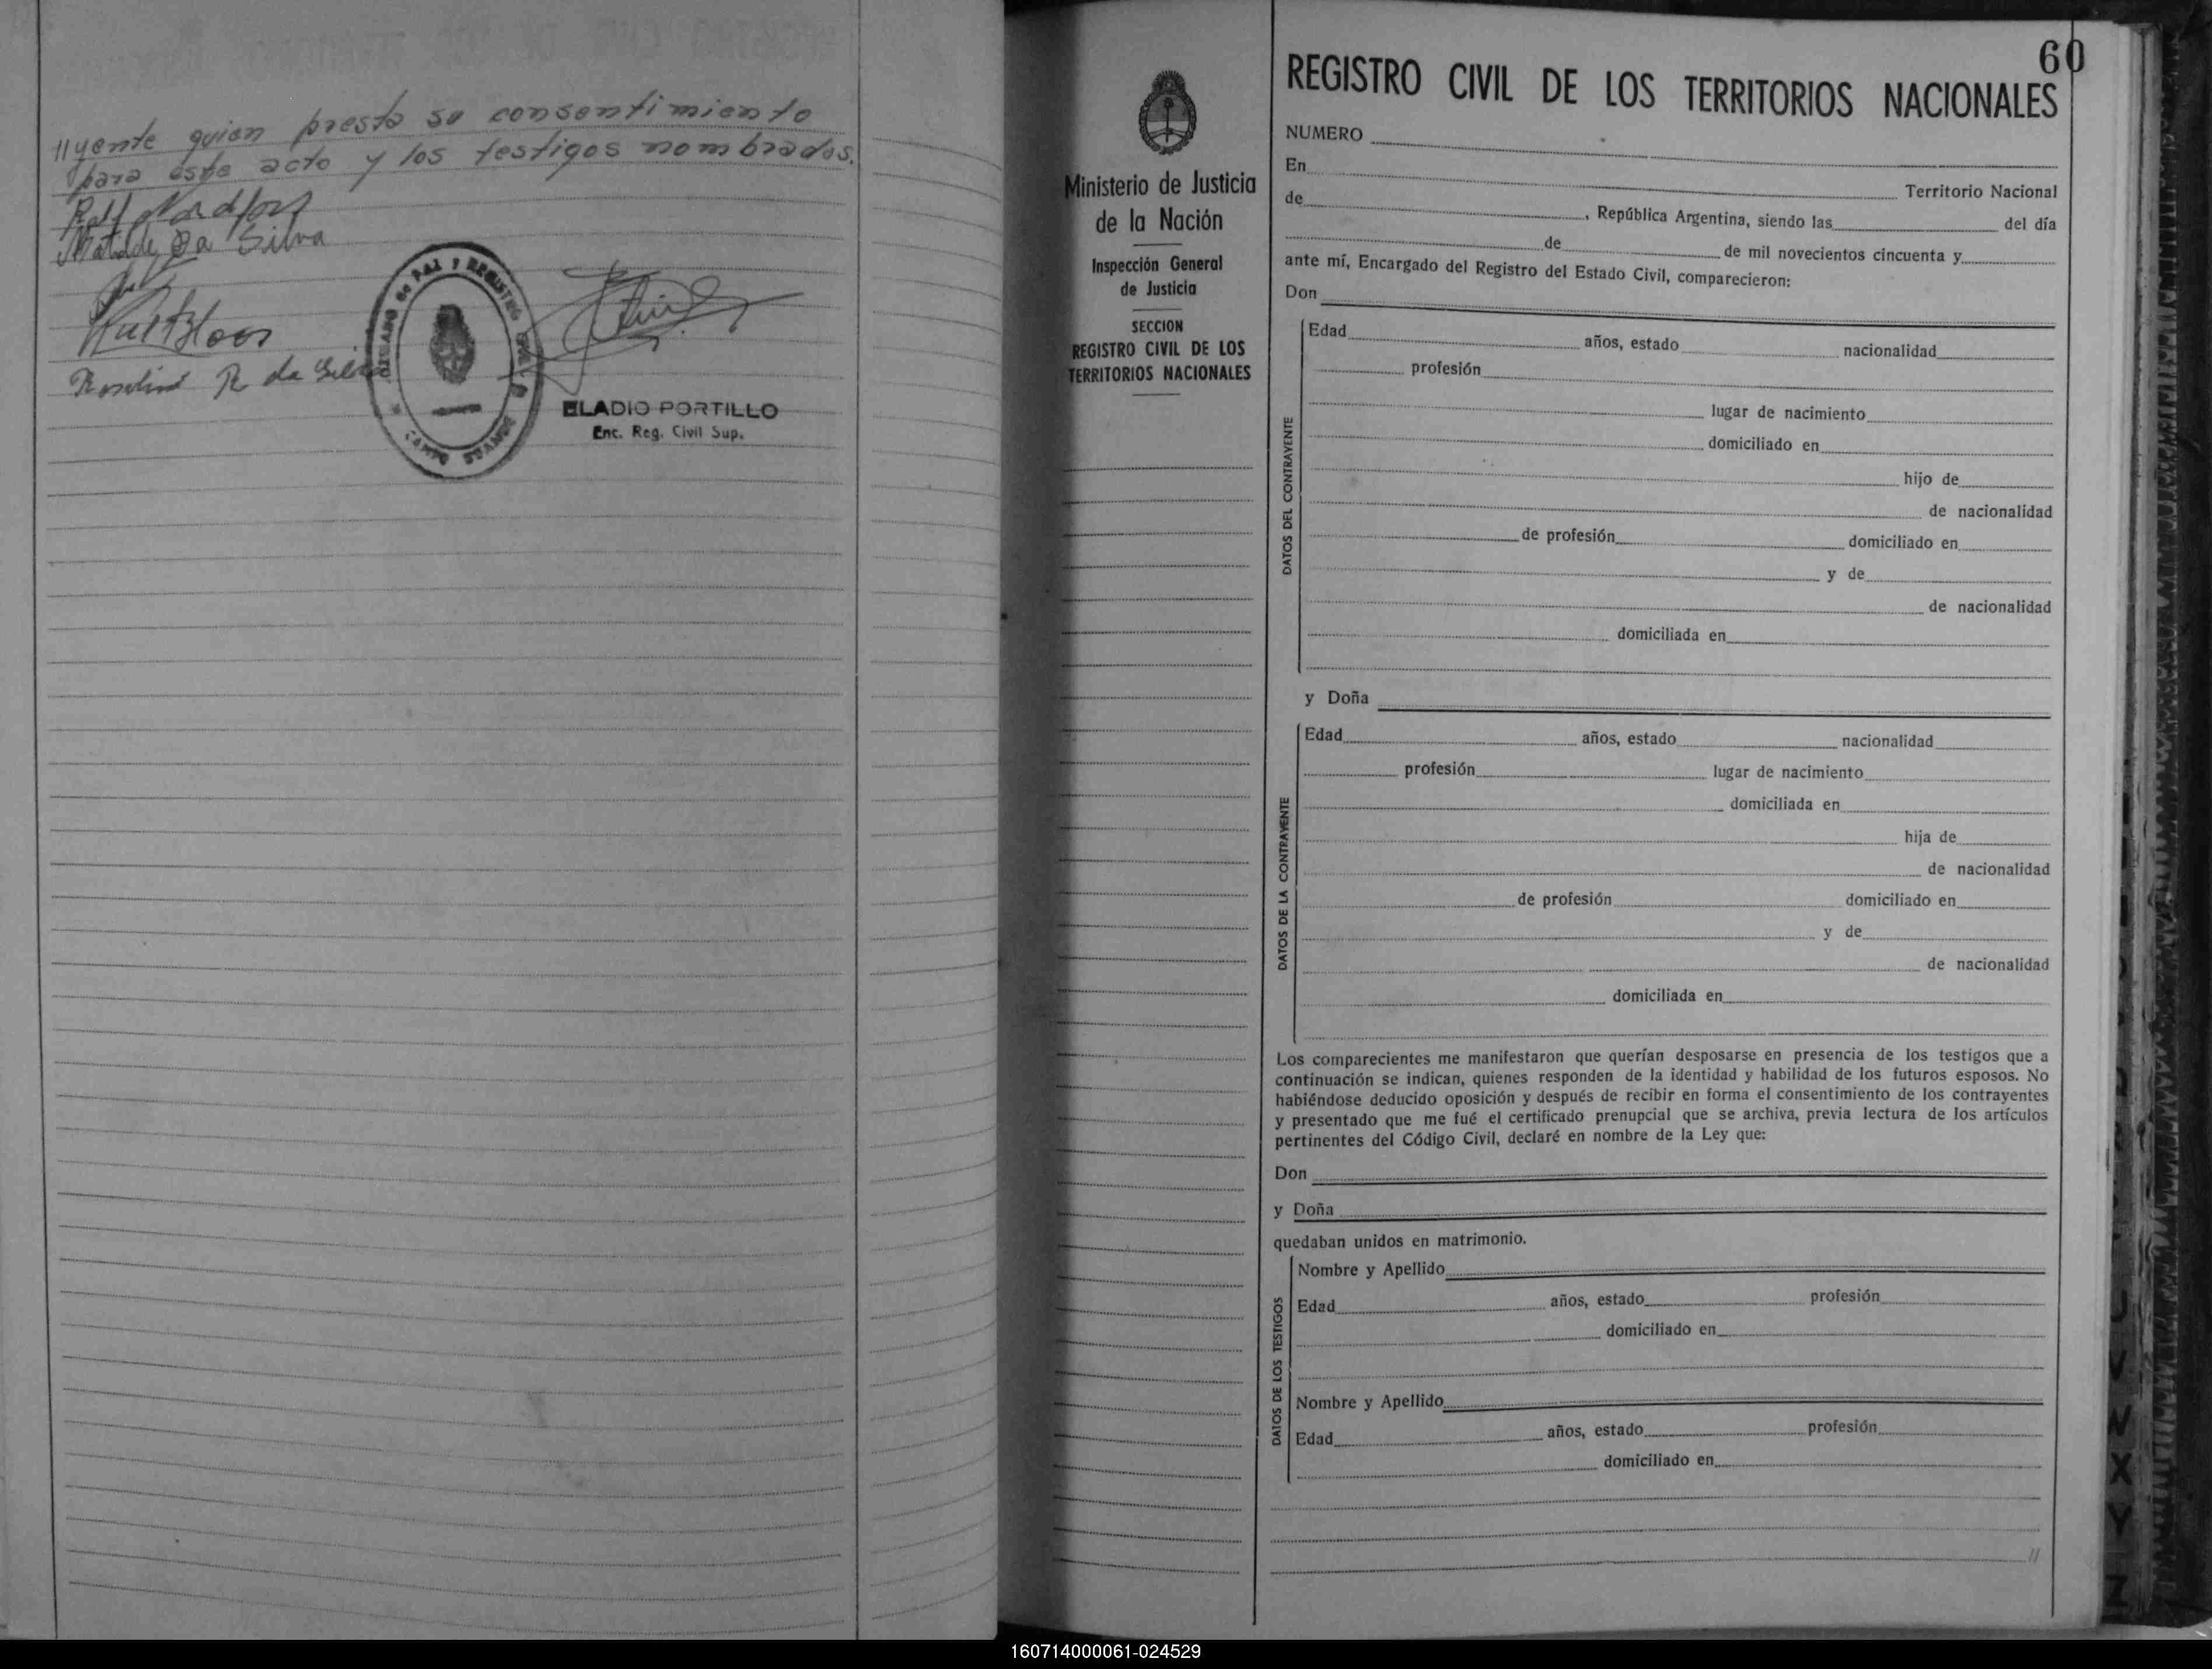 //yente quien presta su consentimiento
para este acto y los testigos nombrados.
Matilde Da Silva
R. da Silva
JUZGADO de PAZ Y REGISTRO CIVIL
ELADIO PORTILLO
Enc. Reg. Civil Sup.
60
Ministerio de Justicia
de la Nación
Inspección General
de Justicia
SECCION
REGISTRO CIVIL DE LOS
TERRITORIOS NACIONALES
REGISTRO CIVIL DE LOS TERRITORIOS NACIONALES
NUMERO
En Territorio Nacional
de , República Argentina, siendo las del día
de de mil novecientos cincuenta y
ante mí, Encargado del Registro del Estado Civil, comparecieron:
Don
DATOS DEL CONTRAYENTE
Edad años, estado nacionalidad
profesión
lugar de nacimiento
domiciliado en
hijo de
de nacionalidad
de profesión domiciliado en
y de
de nacionalidad
domiciliada en
y Doña
DATOS DE LA CONTRAYENTE
Edad años, estado nacionalidad
profesión lugar de nacimiento
domiciliada en
hija de
de nacionalidad
de profesión domiciliado en
y de
de nacionalidad
domiciliada en
Los comparecientes me manifestaron que querían desposarse en presencia de los testigos que a
continuación se indican, quienes responden de la identidad y habilidad de los futuros esposos. No
habiéndose deducido oposición y después de recibir en forma el consentimiento de los contrayentes
y presentado que me fué el certificado prenupcial que se archiva, previa lectura de los artículos
pertinentes del Código Civil, declaré en nombre de la Ley que:
Don
y Doña
quedaban unidos en matrimonio.
DATOS DE LOS TESTIGOS
Nombre y Apellido
Edad años, estado profesión
domiciliado en
Nombre y Apellido
Edad años, estado profesión
domiciliado en
//
U
V
W
X
Y
Z
160714000061-024529